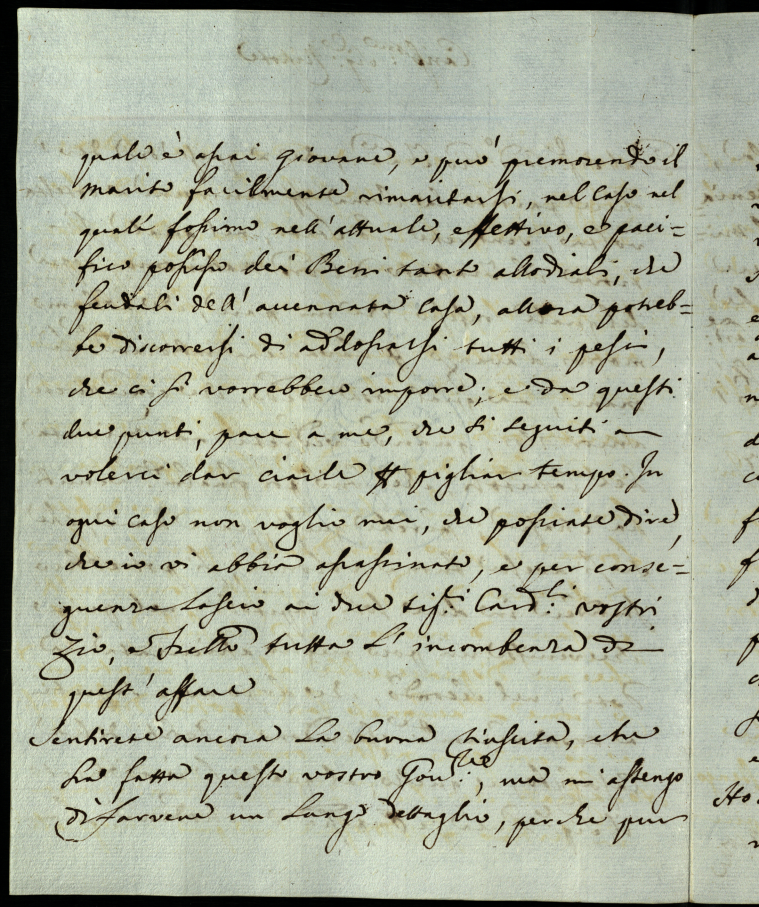 quale è assai giovane, e può premorendo il
marito facilmente rimaritarsi, nel caso nel
quale fossimo nell' attuale, effettivo, e paci=
fico possesso dei Beni tanto allodiali, che
feudali dell' accennata Casa, allora potreb=
be discorrersi di addossarsi tutti i pesi,
che ci si vorrebbero imporre; e da questi
due punti, pare a me, che si seguiti a
volerci dar ciarle pigliar tempo. In
ogni caso non voglio mai, che possiate dire,
che io vi abbia assassinato, e per conse=
guenza lascio ai due Sig.ri Card.li vostri
Zio, e Frello tutta l' incombenza di
quest' affare
Sentirete ancora la buona riuscita, che
ha fatta questo vostro Gov.re, ma mi astengo
di farvene un lungo dettaglio, perche pur
Ho